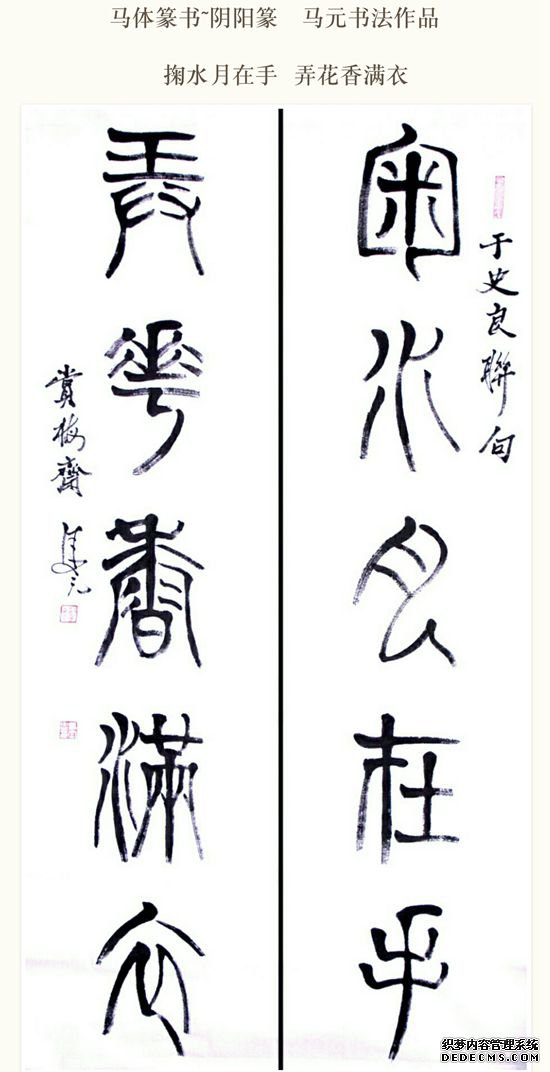 马体篆书~阴阳篆 马元书法作品
掬水月在手 弄花香满衣
于史良聯句
匊水月在手
弄花香滿衣
賞梅齋 馬元
织梦内容管理系统
DEDECMS.COM